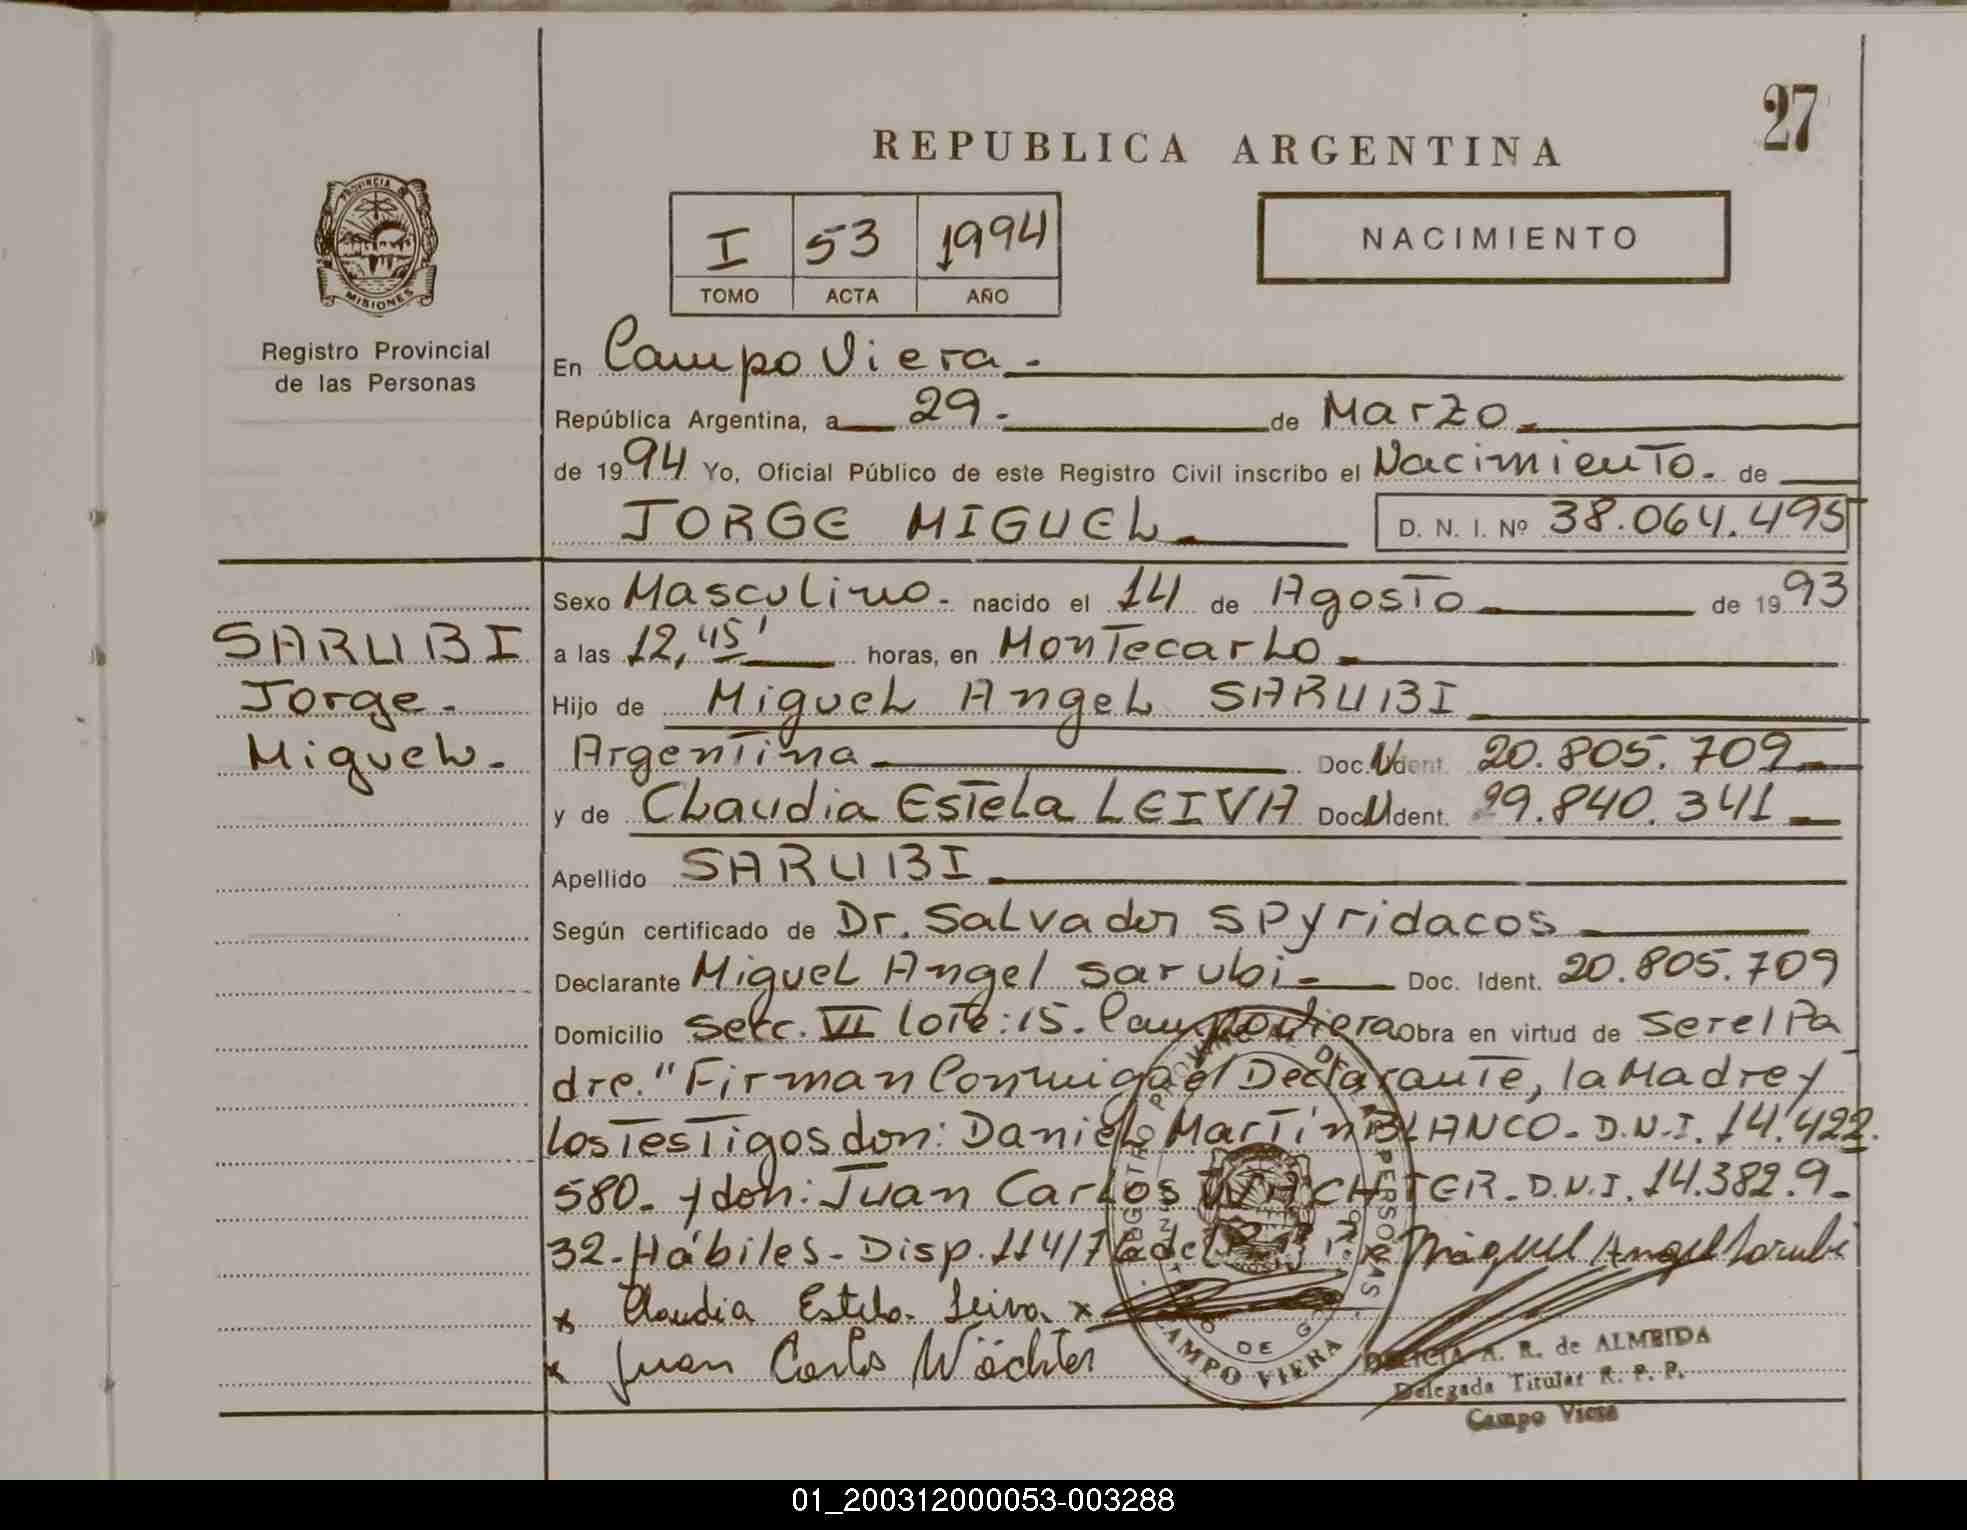 27
REPUBLICA ARGENTINA
PROVINCIA DE
MISIONES
Registro Provincial
de las Personas
I 53 1994
TOMO ACTA AÑO
NACIMIENTO
En Campo Viera.
República Argentina, a 29. de Marzo
de 1994 Yo, Oficial Público de este Registro Civil inscribo el Nacimiento. de
JORGE MIGUEL D. N. I. Nº 38.064.495
Sexo Masculino. nacido el 14 de Agosto de 1993
SARUBI
Jorge.
Miguel.
a las 12,45' horas, en Montecarlo
Hijo de Miguel Angel SARUBI
Argentina Doc. Ident. 20.805.709
y de Claudia Estela LEIVA Doc. Ident. 29.840.341
Apellido SARUBI
Según certificado de Dr. Salvador SPyridacos
Declarante Miguel Angel Sarubi Doc. Ident. 20.805.709
Domicilio Secc. VI lote: 15. Campo Viera Obra en virtud de Ser el Pa
dre." Firman Conmigo el Declarante, la Madre y
los Testigos don: Daniel Martín BLANCO. D.N.I. 14.422.
580. y don: Juan Carlos WACHTER. D.N.I. 14.382.9-
32-Hábiles- Disp. 114/76 del
x Miguel Angel Sarubi
x Claudia Estela Leiva x
x Juan Carlos Wächter
CAMPO VIERA
A. R. de ALMEIDA
Delegada Titular R. P. P.
Campo Viera
01_200312000053-003288